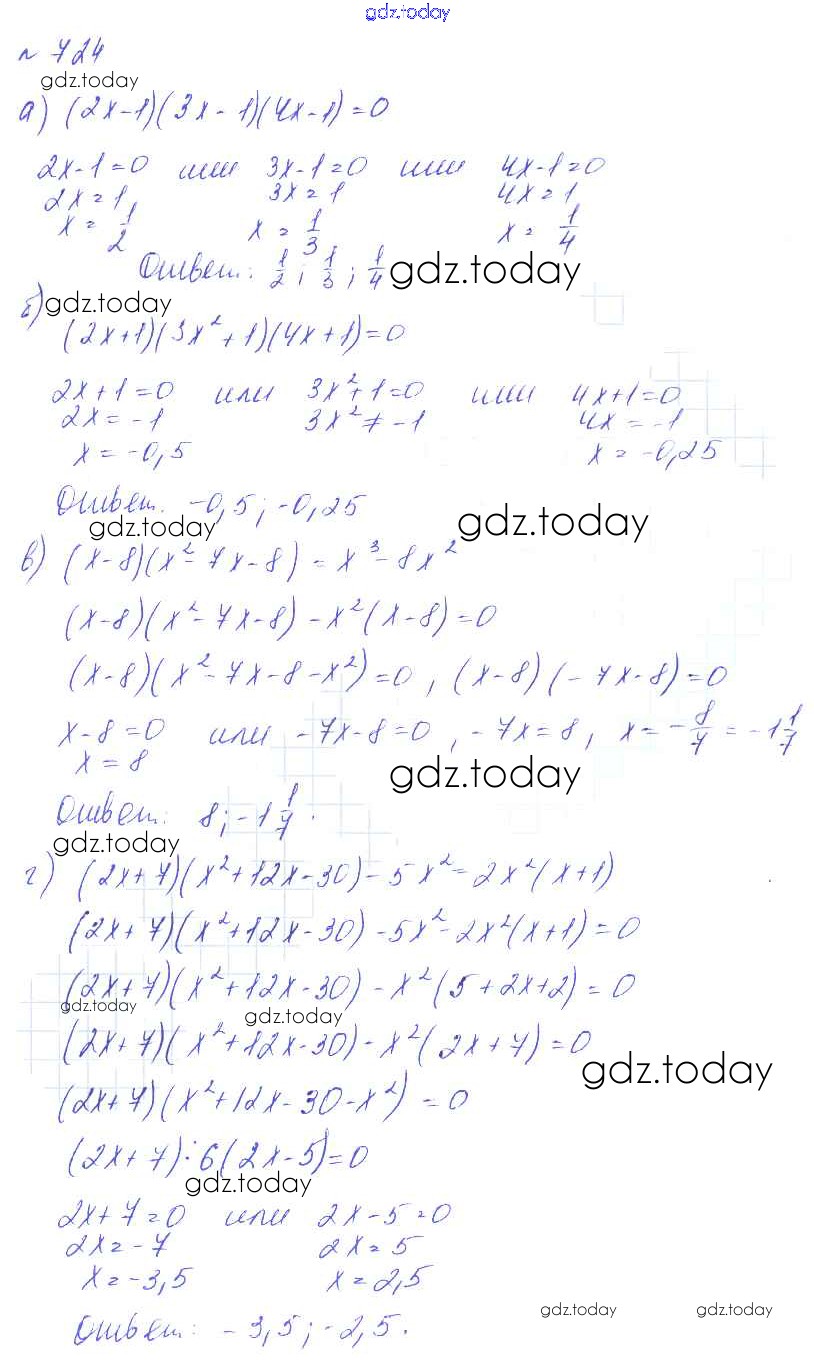 gdz.today
№ 724
gdz.today
а) (2x-1)(3x-1)(4x-1)=0
2x-1=0 или 3x-1=0 или 4x-1=0
2x=1, 3x=1 4x=1
x= 1/2 x= 1/3 x= 1/4
Ответ: 1/2; 1/3; 1/4 gdz.today
б) gdz.today
(2x+1)(3x²+1)(4x+1)=0
2x+1=0 или 3x²+1=0 или 4x+1=0
2x=-1 3x²≠-1 4x=-1
x=-0,5 x=-0,25
Ответ. -0,5; -0,25
gdz.today gdz.today
в) (x-8)(x²-7x-8)=x³-8x²
(x-8)(x²-7x-8)-x²(x-8)=0
(x-8)(x²-7x-8-x²)=0, (x-8)(-7x-8)=0
x-8=0 или -7x-8=0, -7x=8, x=-8/7=-1 1/7
x=8
gdz.today
Ответ: 8; -1 1/7.
gdz.today
г) (2x+7)(x²+12x-30)-5x²=2x²(x+1)
(2x+7)(x²+12x-30)-5x²-2x²(x+1)=0
(2x+7)(x²+12x-30)-x²(5+2x+2)=0
gdz.today gdz.today
(2x+7)(x²+12x-30)-x²(2x+7)=0
gdz.today
(2x+7)(x²+12x-30-x²)=0
(2x+7)·6(2x-5)=0
gdz.today
2x+7=0 или 2x-5=0
2x=-7 2x=5
x=-3,5 x=2,5
gdz.today gdz.today
Ответ: -3,5; -2,5.